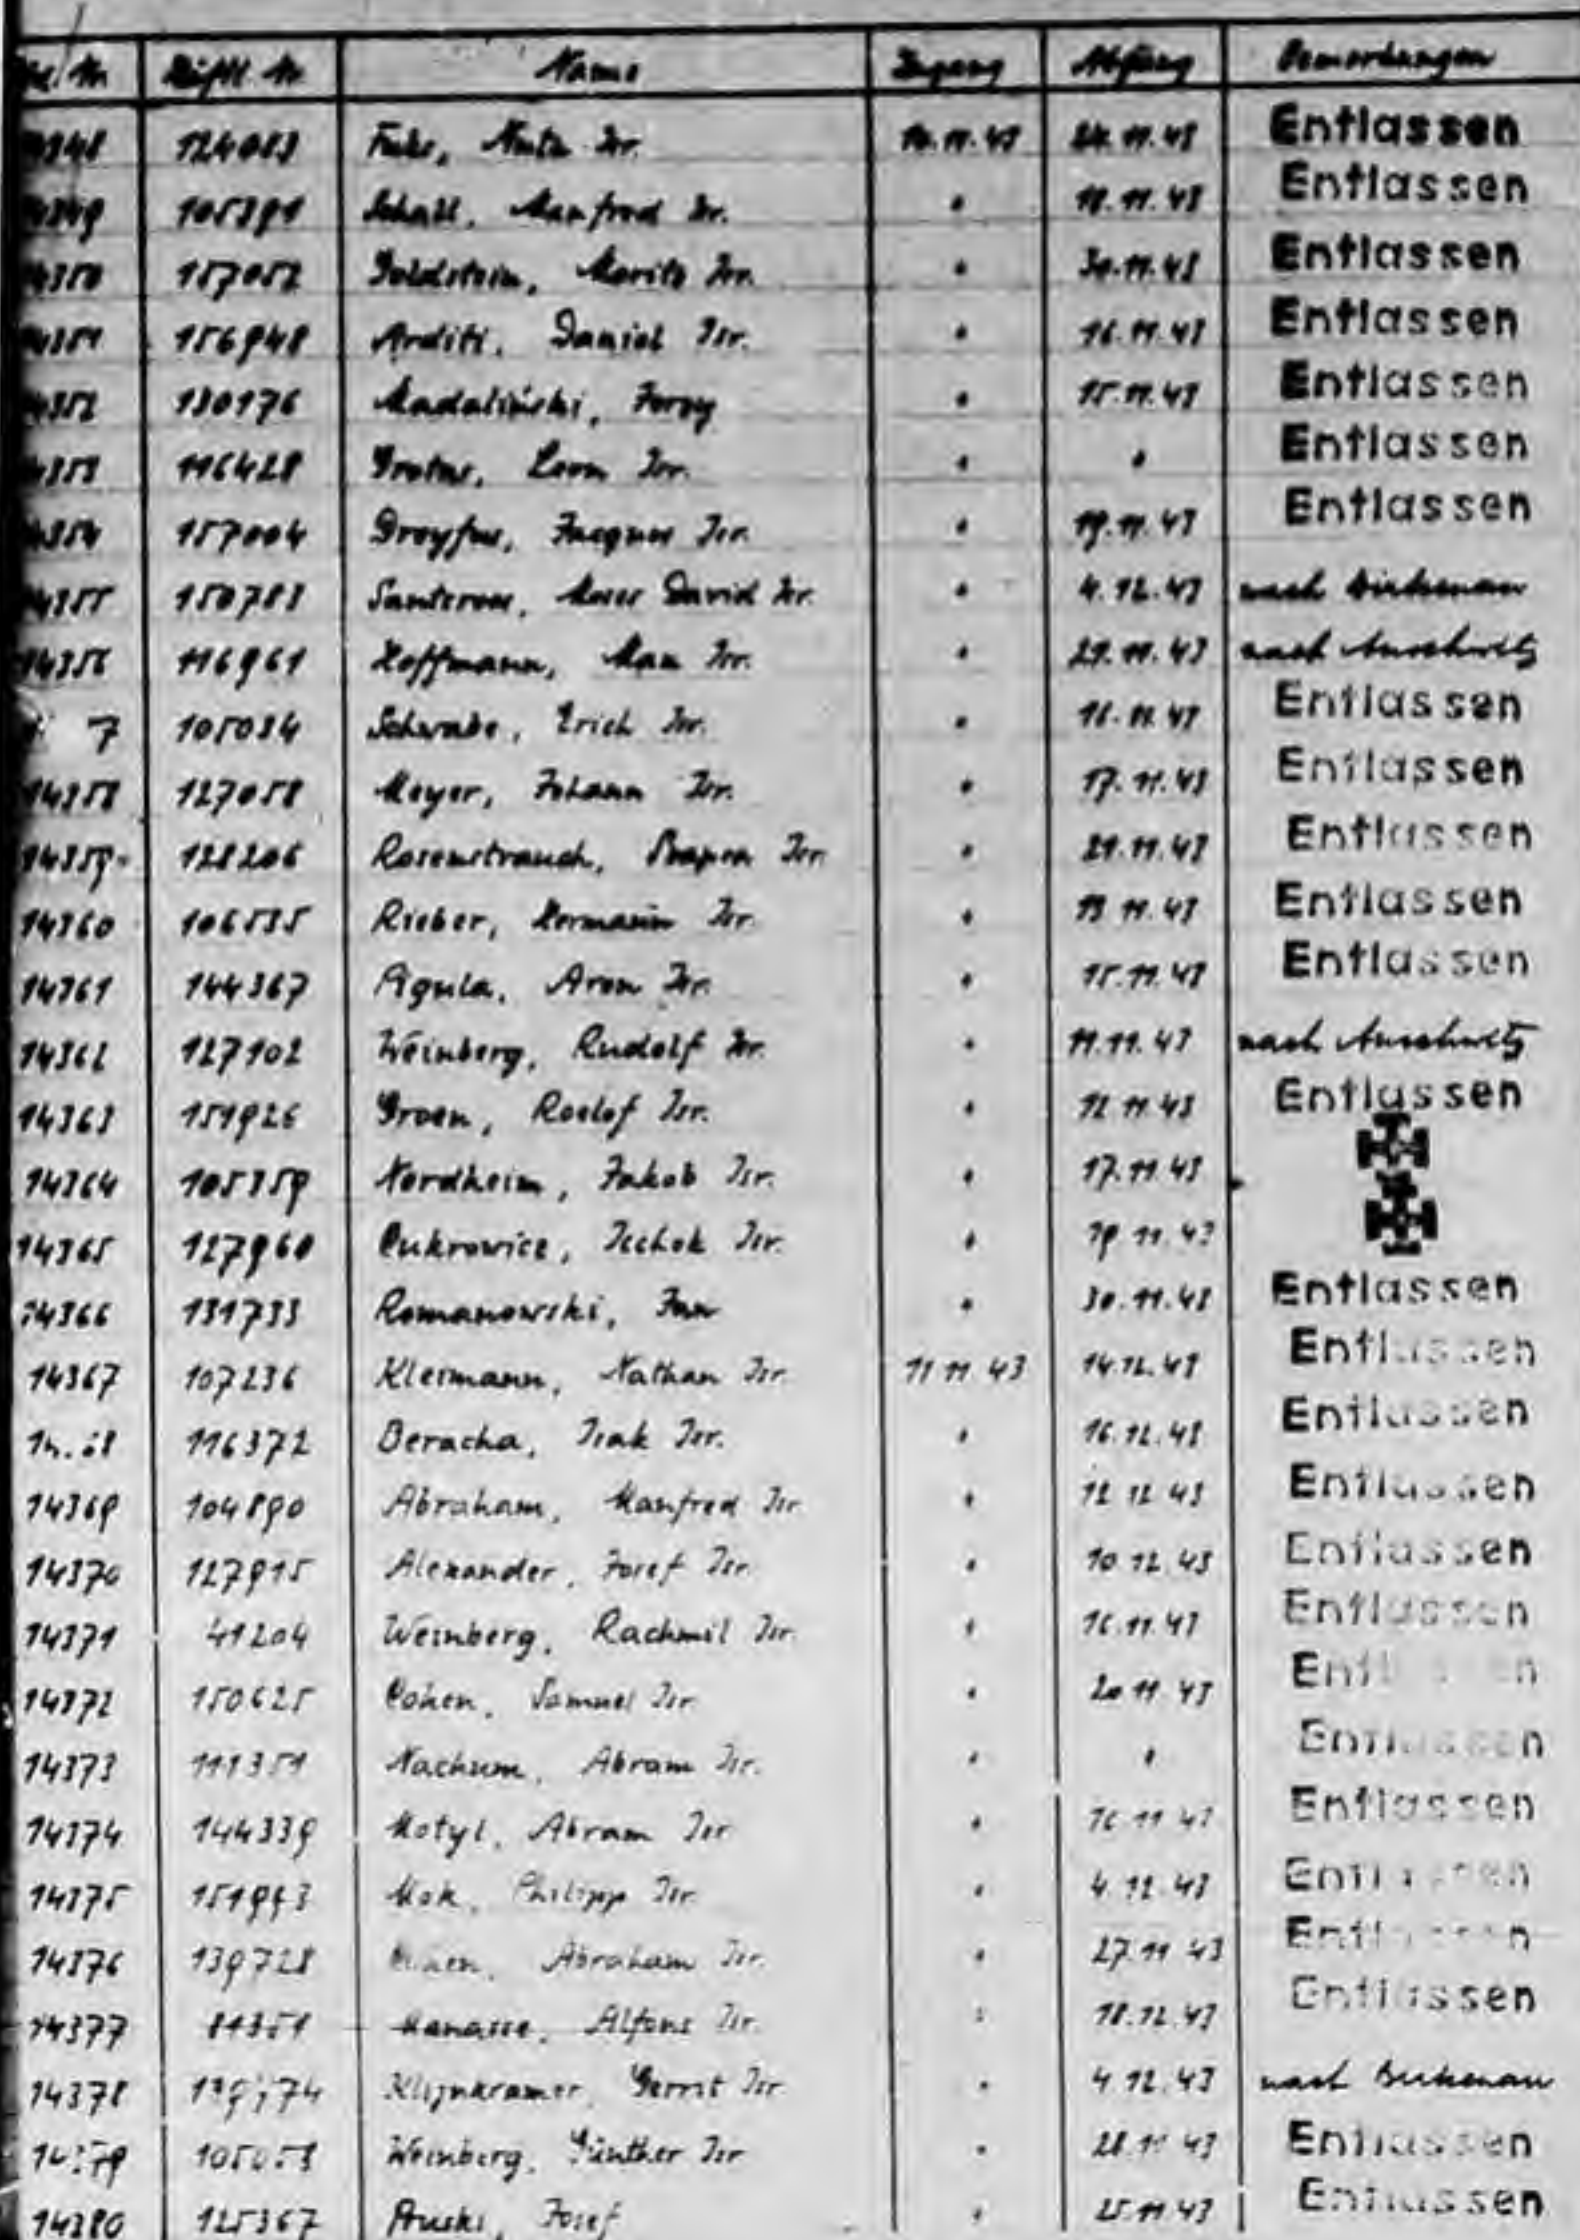 Häftl. Nr. Name Zugang Abgang Bemerkungen
124083 Isr. 24.11.43 Entlassen
105391 Schall, Manfred Isr. " 18.11.43 Entlassen
14350 157052 Goldstein, Moritz Isr. " 30.11.43 Entlassen
14351 156948 Arditi, Daniel Isr. " 16.11.43 Entlassen
14352 130176 Madaliński, Jerzy " 15.11.43 Entlassen
14353 116428 Leon Isr. " " Entlassen
14354 157004 Dreyfus, Jacques Isr. " 19.11.43 Entlassen
14355 150783 Moses David Isr. " 4.12.43 nach Birkenau
14356 116961 Hoffmann, Max Isr. " 29.11.43 nach Auschwitz
7 105034 Schwabe, Erich Isr. " 16.11.43 Entlassen
14358 127058 Meyer, Johann Isr. " 17.11.43 Entlassen
14359 128206 Rosenstrauch, Isr. " 29.11.43 Entlassen
14360 106535 Rieber, Hermann Isr. " 13.11.43 Entlassen
14361 144367 Pigula, Aron Isr. " 15.11.43 Entlassen
14362 127102 Weinberg, Rudolf Isr. " 11.11.43 nach Auschwitz
14363 151926 Groen, Roelof Isr. " 12.11.43 Entlassen
14364 105359 Nordheim, Jakob Isr. " 17.11.43
14365 127960 Cukrowicz, Icchok Isr. " 19.11.43
14366 131733 Romanowski, Jan " 30.11.43 Entlassen
14367 107236 Kleimann, Nathan Isr. 11.11.43 14.12.43 Entlassen
116372 Beracha, Isak Isr. " 16.12.43 Entlassen
14369 104890 Abraham, Manfred Isr. " 12.12.43 Entlassen
14370 127915 Alexander, Josef Isr. " 10.12.43 Entlassen
14371 41204 Weinberg, Rachmil Isr. " 16.11.43 Entlassen
14372 150625 Cohen, Samuel Isr. " 20.11.43
14373 111351 Nachum, Abram Isr. " " Entlassen
14374 144339 Motyl, Abram Isr. " 16.11.43 Entlassen
14375 Mok, Philipp Isr. " 4.12.43 Entlassen
14376 139728 Abraham Isr. " 27.11.43 Entlassen
14377 81351 Manasse, Alfons Isr. " 18.12.43 Entlassen
14378 Klijnkramer, Gerrit Isr. " 4.12.43 nach Birkenau
14379 Weinberg, Günther Isr. " 28.11.43 Entlassen
14380 125367 Josef " 25.11.43 Entlassen